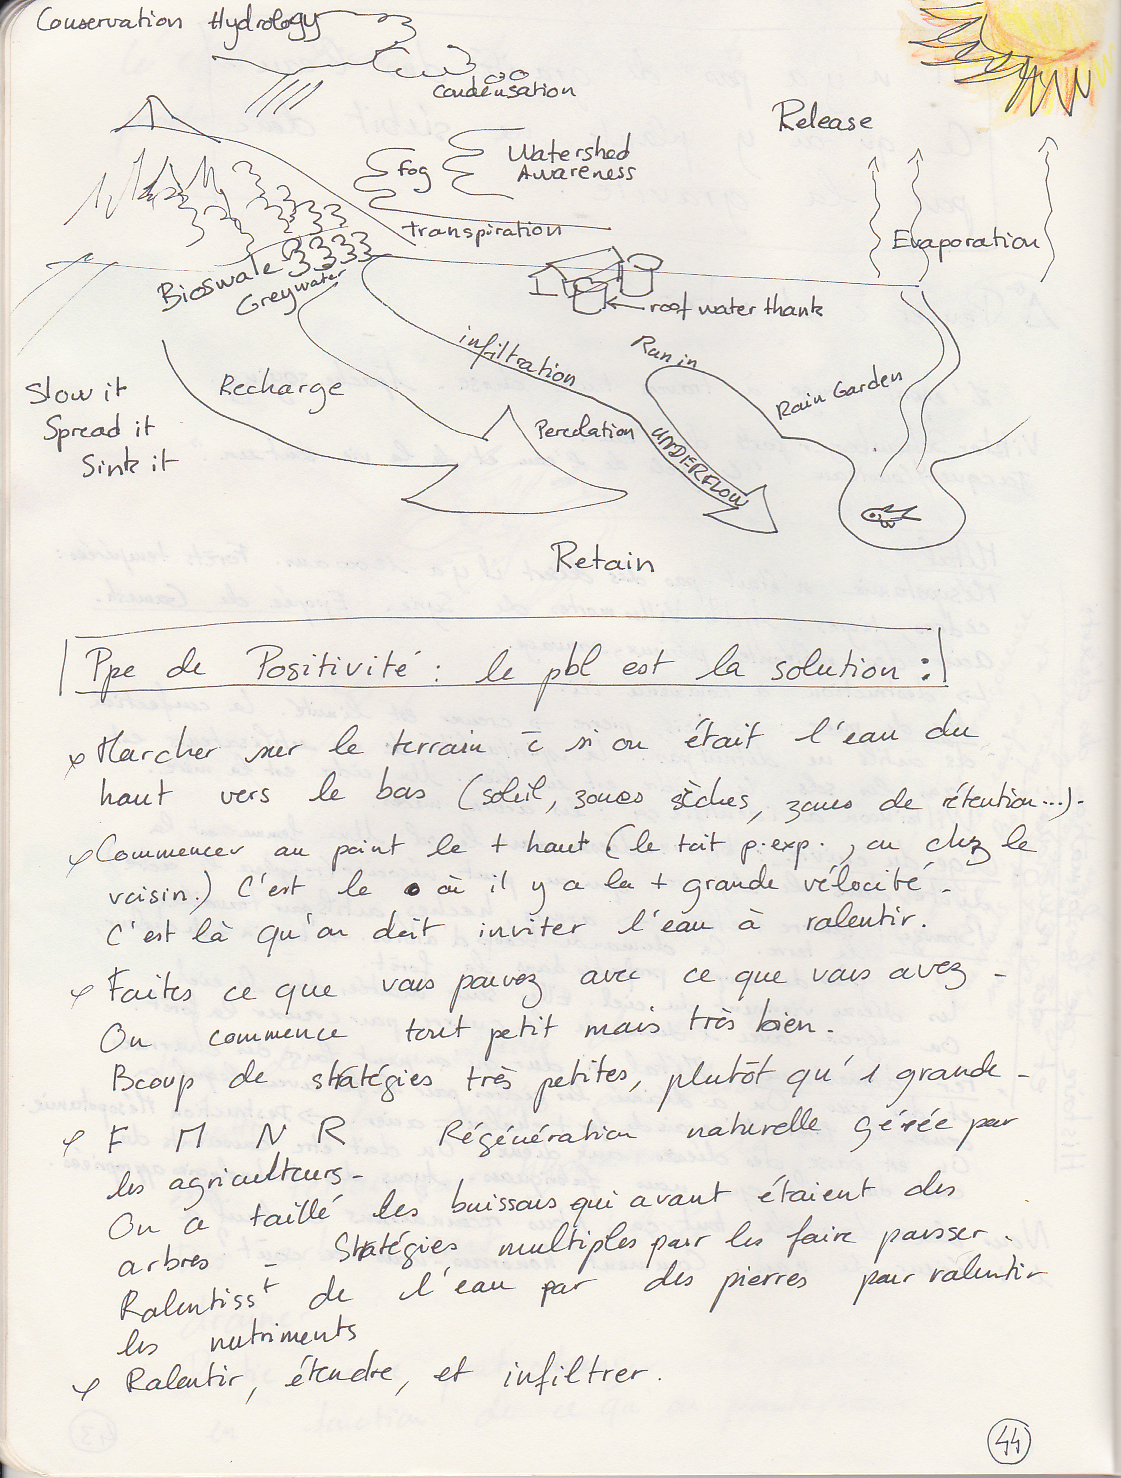 Conservation Hydrology
condensation
Release
Fog
Watershed
Awareness
transpiration
Evaporation
Bioswale
Greywater
roof water thank
infiltration
Run in
Rain Garden
Slow it
Spread it
Sink it
Recharge
Percolation
UNDERFLOW
Retain
Ppe de Positivité : le pbl est la solution :
Marcher sur le terrain c̄ si on était l'eau du
haut vers le bas (soleil, zones sèches, zones de rétention...).
Commencer au point le + haut (le toit p.exp., ou chez le
voisin.) C'est le où il y a la + grande vélocité.
C'est là qu'on doit inviter l'eau à ralentir.
Faites ce que vous pouvez avec ce que vous avez -
On commence tout petit mais très bien.
Bcoup de stratégies très petites, plutôt qu'1 grande -
F M N R Régénération naturelle gérée par
les agriculteurs -
On a taillé les buissons qui avant étaient des
arbres - Stratégies multiples pour les faire pousser.
Ralentisst de l'eau par des pierres pour ralentir
les nutriments
Ralentir, étendre, et infiltrer.
44